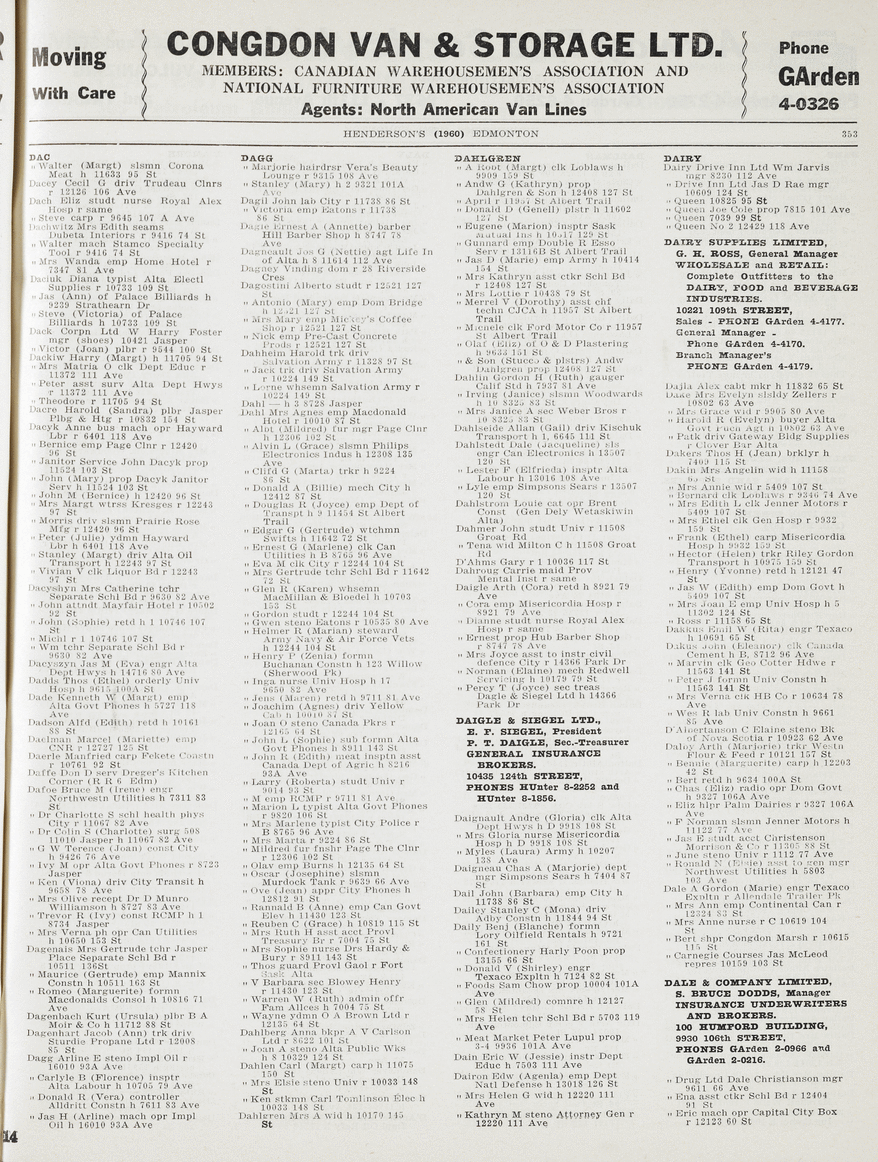 Moving
With Care
CONGDON VAN & STORAGE LTD.
MEMBERS: CANADIAN WAREHOUSEMEN'S ASSOCIATION AND
NATIONAL FURNITURE WAREHOUSEMEN'S ASSOCIATION
Agents: North American Van Lines
Phone
GArden
4-0326
HENDERSON'S (1960) EDMONTON
353
DAC
" Walter (Margt) slsmn Corona
Meat h 11633 95 St
Dacey Cecil G driv Trudeau Clnrs
r 12126 106 Ave
Dach Eliz studt nurse Royal Alex
Hosp r same
" Steve carp r 9645 107 A Ave
Dachwitz Mrs Edith seams
Dubeta Interiors r 9416 74 St
" Walter mach Stamco Specialty
Tool r 9416 74 St
" Mrs Wanda emp Home Hotel r
7347 81 Ave
Daciuk Diana typist Alta Electl
Supplies r 10733 109 St
" Jas (Ann) of Palace Billiards h
9239 Strathearn Dr
" Steve (Victoria) of Palace
Billiards h 10733 109 St
Dack Corpn Ltd W Harry Foster
mgr (shoes) 10421 Jasper
" Victor (Joan) plbr r 9544 100 St
Dackiw Harry (Margt) h 11705 94 St
" Mrs Matria O clk Dept Educ r
11372 111 Ave
" Peter asst surv Alta Dept Hwys
r 11372 111 Ave
" Theodore r 11705 94 St
Dacre Harold (Sandra) plbr Jasper
Plbg & Htg r 10832 154 St
Dacyk Anne bus mach opr Hayward
Lbr r 6401 118 Ave
" Bernice emp Page Clnr r 12420
96 St
" Janitor Service John Dacyk prop
11524 103 St
" John (Mary) prop Dacyk Janitor
Serv h 11524 103 St
" John M (Bernice) h 12420 96 St
" Mrs Margt wtrss Kresges r 12243
97 St
" Morris driv slsmn Prairie Rose
Mfg r 12420 96 St
" Peter (Julie) ydmn Hayward
Lbr h 6401 118 Ave
" Stanley (Margt) driv Alta Oil
Transport h 12243 97 St
" Vivian V clk Liquor Bd r 12243
97 St
Dacyshyn Mrs Catherine tchr
Separate Schl Bd r 9630 82 Ave
" John attndt Mayfair Hotel r 10502
92 St
" John (Sophie) retd h 1 10746 107
St
" Michl r 1 10746 107 St
" Wm tchr Separate Schl Bd r
9630 82 Ave
Dacyszyn Jas M (Eva) engr Alta
Dept Hwys h 14716 80 Ave
Dadds Thos (Ethel) orderly Univ
Hosp h 9615 100A St
Dade Kenneth W (Margt) emp
Alta Govt Phones h 5727 118
Ave
Dadson Alfd (Edith) retd h 10161
88 St
Daelman Marcel (Mariette) emp
CNR r 12727 125 St
Daerle Manfried carp Fekete Constn
r 10761 92 St
Daffe Don D serv Dreger's Kitchen
Corner (R R 6 Edm)
Dafoe Bruce M (Irene) engr
Northwestn Utilities h 7311 83
St
" Dr Charlotte S schl health phys
City r 11067 82 Ave
" Dr Colin S (Charlotte) surg 508
11010 Jasper h 11067 82 Ave
" G W Terence (Joan) const City
h 9426 76 Ave
" Ivy M opr Alta Govt Phones r 8723
Jasper
" Ken (Viona) driv City Transit h
9658 78 Ave
" Mrs Olive recept Dr D Munro
Williamson h 8727 83 Ave
" Trevor R (Ivy) const RCMP h 1
8734 Jasper
" Mrs Verna ph opr Can Utilities
h 10650 153 St
Dagenais Mrs Gertrude tchr Jasper
Place Separate Schl Bd r
10511 136St
" Maurice (Gertrude) emp Mannix
Constn h 10511 163 St
" Romeo (Marguerite) formn
Macdonalds Consol h 10816 71
Ave
Dagenbach Kurt (Ursula) plbr B A
Moir & Co h 11712 88 St
Dagenhart Jacob (Ann) trk driv
Sturdie Propane Ltd h 12008
85 St
Dagg Arline E steno Impl Oil r
16010 93A Ave
" Carlyle B (Florence) insptr
Alta Labour h 10705 79 Ave
" Donald R (Vera) controller
Alldritt Constn h 7611 83 Ave
" Jas H (Arline) mach opr Impl
Oil h 16010 93A Ave
14
DAGG
" Marjorie hairdrsr Vera's Beauty
Lounge r 9315 108 Ave
" Stanley (Mary) h 2 9321 101A
Ave
Dagil John lab City r 11738 86 St
" Victoria emp Eatons r 11738
86 St
Dagle Ernest A (Annette) barber
Hill Barber Shop h 8747 78
Ave
Dagneault Jos G (Nettie) agt Life In
of Alta h 8 11614 112 Ave
Dagney Vinding dom r 28 Riverside
Cres
Dagostini Alberto studt r 12521 127
St
" Antonio (Mary) emp Dom Bridge
h 12521 127 St
" Mrs Mary emp Mickey's Coffee
Shop r 12521 127 St
" Nick emp Pre-Cast Concrete
Prods r 12521 127 St
Daheim Harold trk driv
Salvation Army r 11328 97 St
" Jack trk driv Salvation Army
r 10224 149 St
" Lorne whsemn Salvation Army r
10224 149 St
Dahl — h 3 8728 Jasper
Dahl Mrs Agnes emp Macdonald
Hotel r 10010 87 St
" Alot (Mildred) fur mgr Page Clnr
h 12306 102 St
" Alvin L (Grace) slsmn Philips
Electronics Indus h 12308 135
Ave
" Clifd G (Marta) trkr h 9224
86 St
" Donald A (Billie) mech City h
12412 87 St
" Douglas R (Joyce) emp Dept of
Transpt h 9 11454 St Albert
Trail
" Edgar G (Gertrude) wtchmn
Swifts h 11642 72 St
" Ernest G (Marlene) clk Can
Utilities h B 8765 96 Ave
" Eva M clk City r 12244 104 St
" Mrs Gertrude tchr Schl Bd r 11642
72 St
" Glen R (Karen) whsemn
MacMillan & Bloedel h 10703
153 St
" Gordon studt r 12244 104 St
" Gwen steno Eatons r 10535 80 Ave
" Helmer R (Marian) steward
Army Navy & Air Force Vets
h 12244 104 St
" Henry P (Zenia) formn
Buchanan Constn h 123 Willow
(Sherwood Pk)
" Inga nurse Univ Hosp h 17
9650 82 Ave
" Jens (Maren) retd h 9711 81 Ave
" Joachim (Agnes) driv Yellow
Cab h 10010 87 St
" Joan O steno Canada Pkrs r
12165 64 St
" John L (Sophie) sub formn Alta
Govt Phones h 8911 143 St
" John R (Edith) meat insptn asst
Canada Dept of Agric h 8216
93A Ave
" Larry (Roberta) studt Univ r
9014 93 St
" M emp RCMP r 9711 81 Ave
" Marion L typist Alta Govt Phones
r 9820 106 St
" Mrs Marlene typist City Police r
B 8765 96 Ave
" Mrs Marta r 9224 86 St
" Mildred fur fnshr Page The Clnr
r 12306 102 St
" Olav emp Burns h 12135 64 St
" Oscar (Josephine) slsmn
Murdock Tank r 9639 66 Ave
" Ove (Jean) appr City Phones h
12812 91 St
" Rannald B (Anne) emp Can Govt
Elev h 11430 123 St
" Reuben C (Grace) h 10819 115 St
" Mrs Ruth H asst acct Provl
Treasury Br r 7004 75 St
" Mrs Sophie nurse Drs Hardy &
Bury r 8911 143 St
" Thos guard Provl Gaol r Fort
Sask Alta
" V Barbara sec Blowey Henry
r 11430 123 St
" Warren W (Ruth) admin offr
Fam Allces h 7004 75 St
" Wayne ydmn O A Brown Ltd r
12135 64 St
Dahlberg Anna bkpr A V Carlson
Ltd r 8622 101 St
" Joan A steno Alta Public Wks
h 8 10329 124 St
Dahlen Carl (Margt) carp h 11075
150 St
" Mrs Elsie steno Univ r 10033 148
St
" Ken stkmn Carl Tomlinson Elec h
10033 148 St
Dahlgren Mrs A wid h 10179 145
St
DAHLGREN
" A Root (Margt) clk Loblaws h
9909 159 St
" Andw G (Kathryn) prop
Dahlgren & Son h 12408 127 St
" April r 11957 St Albert Trail
" Donald D (Genell) plstr h 11602
127 St
" Eugene (Marion) insptr Sask
Mutual Ins h 10517 129 St
" Gunnard emp Double R Esso
Serv r 13116B St Albert Trail
" Jas D (Marie) emp Army h 10414
154 St
" Mrs Kathryn asst ctkr Schl Bd
r 12408 127 St
" Mrs Lottie r 10438 79 St
" Merrel V (Dorothy) asst chf
techn CJCA h 11957 St Albert
Trail
" Michele clk Ford Motor Co r 11957
St Albert Trail
" Olaf (Eliz) of O & D Plastering
h 9633 151 St
" & Son (Stucco & plstrs) Andw
Dahlgren prop 12408 127 St
Dahlin Gordon H (Ruth) gauger
Calif Std h 7937 81 Ave
" Irving (Janice) slsmn Woodwards
h 10 8325 83 St
" Mrs Janice A sec Weber Bros r
10 8325 83 St
Dahlseide Allan (Gail) driv Kischuk
Transport h 1, 6645 111 St
Dahlstedt Dale (Jacqueline) sls
engr Can Electronics h 13507
120 St
" Lester F (Elfrieda) insptr Alta
Labour h 13016 108 Ave
" Lyle emp Simpsons Sears r 13507
120 St
Dahlstrom Louie cat opr Brent
Const (Gen Dely Wetaskiwin
Alta)
Dahmer John studt Univ r 11508
Groat Rd
" Tena wid Milton C h 11508 Groat
Rd
D'Ahms Gary r 1 10036 117 St
Dahroug Carrie maid Prov
Mental Inst r same
Daigle Arth (Cora) retd h 8921 79
Ave
" Cora emp Misericordia Hosp r
8921 79 Ave
" Dianne studt nurse Royal Alex
Hosp r same
" Ernest prop Hub Barber Shop
r 8747 78 Ave
" Mrs Joyce asst to instr civil
defence City r 14366 Park Dr
" Norman (Elaine) mech Redwell
Servicing h 10179 79 St
" Percy T (Joyce) sec treas
Dagle & Siegel Ltd h 14366
Park Dr
DAIGLE & SIEGEL LTD.,
E. F. SIEGEL, President
P. T. DAIGLE, Sec.-Treasurer
GENERAL INSURANCE
BROKERS.
10435 124th STREET,
PHONES HUnter 8-2252 and
HUnter 8-1856.
Daignault Andre (Gloria) clk Alta
Dept Hwys h D 9918 108 St
" Mrs Gloria nurse Misericordia
Hosp h D 9918 108 St
" Myles (Laura) Army h 10207
138 Ave
Daigneau Chas A (Marjorie) dept
mgr Simpsons Sears h 7404 87
St
Dail John (Barbara) emp City h
11738 86 St
Dailey Stanley C (Mona) driv
Adby Constn h 11844 94 St
Daily Benj (Blanche) formn
Lory Oilfield Rentals h 9721
161 St
" Confectionery Harly Poon prop
13155 66 St
" Donald V (Shirley) engr
Texaco Expltn h 7124 82 St
" Foods Sam Chow prop 10004 101A
Ave
" Glen (Mildred) comnre h 12127
58 St
" Mrs Helen tchr Schl Bd r 5703 119
Ave
" Meat Market Peter Lupul prop
3-4 9936 101A Ave
Dain Eric W (Jessie) instr Dept
Educ h 7503 111 Ave
Dairon Edw (Agenla) emp Dept
Natl Defense h 13018 126 St
" Mrs Helen G wid h 12220 111
Ave
" Kathryn M steno Attorney Gen r
12220 111 Ave
DAIRY
Dairy Drive Inn Ltd Wm Jarvis
mgr 8230 112 Ave
" Drive Inn Ltd Jas D Rae mgr
10609 124 St
" Queen 10825 95 St
" Queen Joe Cole prop 7815 101 Ave
" Queen 7039 99 St
" Queen No 2 12429 118 Ave
DAIRY SUPPLIES LIMITED,
G. H. ROSS, General Manager
WHOLESALE and RETAIL:
Complete Outfitters to the
DAIRY, FOOD and BEVERAGE
INDUSTRIES.
10221 109th STREET,
Sales - PHONE GArden 4-4177.
General Manager -
Phone GArden 4-4170.
Branch Manager's
PHONE GArden 4-4179.
Dajla Alex cabt mkr h 11832 65 St
Dake Mrs Evelyn slsldy Zellers r
10802 63 Ave
" Mrs Grace wid r 9905 80 Ave
" Harold R (Evelyn) buyer Alta
Govt Purch Agt h 10802 63 Ave
" Patk driv Gateway Bldg Supplies
r Clover Bar Alta
Dakers Thos H (Jean) brklyr h
7409 115 St
Dakin Mrs Angelin wid h 11158
65 St
" Mrs Annie wid r 5409 107 St
" Bernard clk Loblaws r 9346 74 Ave
" Mrs Edith L clk Jenner Motors r
5409 107 St
" Mrs Ethel clk Gen Hosp r 9932
159 St
" Frank (Ethel) carp Misericordia
Hosp h 9932 159 St
" Hector (Helen) trkr Riley Gordon
Transport h 10975 159 St
" Henry (Yvonne) retd h 12121 47
St
" Jas W (Edith) emp Dom Govt h
5409 107 St
" Mrs Joan E emp Univ Hosp h 5
11302 124 St
" Ross r 11158 65 St
Dakkus Emil W (Rita) engr Texaco
h 10691 65 St
Dakus John (Eleanor) clk Canada
Cement h B, 8712 96 Ave
" Marvin clk Geo Cotter Hdwe r
11563 141 St
" Peter J formn Univ Constn h
11563 141 St
" Mrs Verna clk HB Co r 10634 78
Ave
" Wes R lab Univ Constn h 9661
85 Ave
D'Albertanson C Elaine steno Bk
of Nova Scotia r 10923 62 Ave
Daloy Arth (Marjorie) trkr Westn
Flour & Feed r 10121 157 St
" Bennie (Marguerite) carp h 12203
42 St
" Bert retd h 9634 100A St
" Chas (Eliz) radio opr Dom Govt
h 9327 106A Ave
" Eliz hlpr Palm Dairies r 9327 106A
Ave
" F Norman slsmn Jenner Motors h
11122 77 Ave
" Jas E studt acct Christenson
Morrison & Co r 11305 88 St
" June steno Univ r 1112 77 Ave
" Ronald N (Elsie) asst to gen mgr
Northwest Utilities h 5803
103 Ave
Dale A Gordon (Marie) engr Texaco
Expltn r Allendale Trailer Pk
" Mrs Ann emp Continental Can r
12324 83 St
" Mrs Anne nurse r C 10619 104
St
" Bert shpr Congdon Marsh r 10615
115 St
" Carnegie Courses Jas McLeod
repres 10159 103 St
DALE & COMPANY LIMITED,
S. BRUCE DODDS, Manager
INSURANCE UNDERWRITERS
AND BROKERS.
100 HUMFORD BUILDING,
9930 106th STREET,
PHONES GArden 2-0966 and
GArden 2-0216.
" Drug Ltd Dale Christianson mgr
9611 66 Ave
" Ena asst ctkr Schl Bd r 12404
91 St
" Eric mach opr Capital City Box
r 12123 60 St